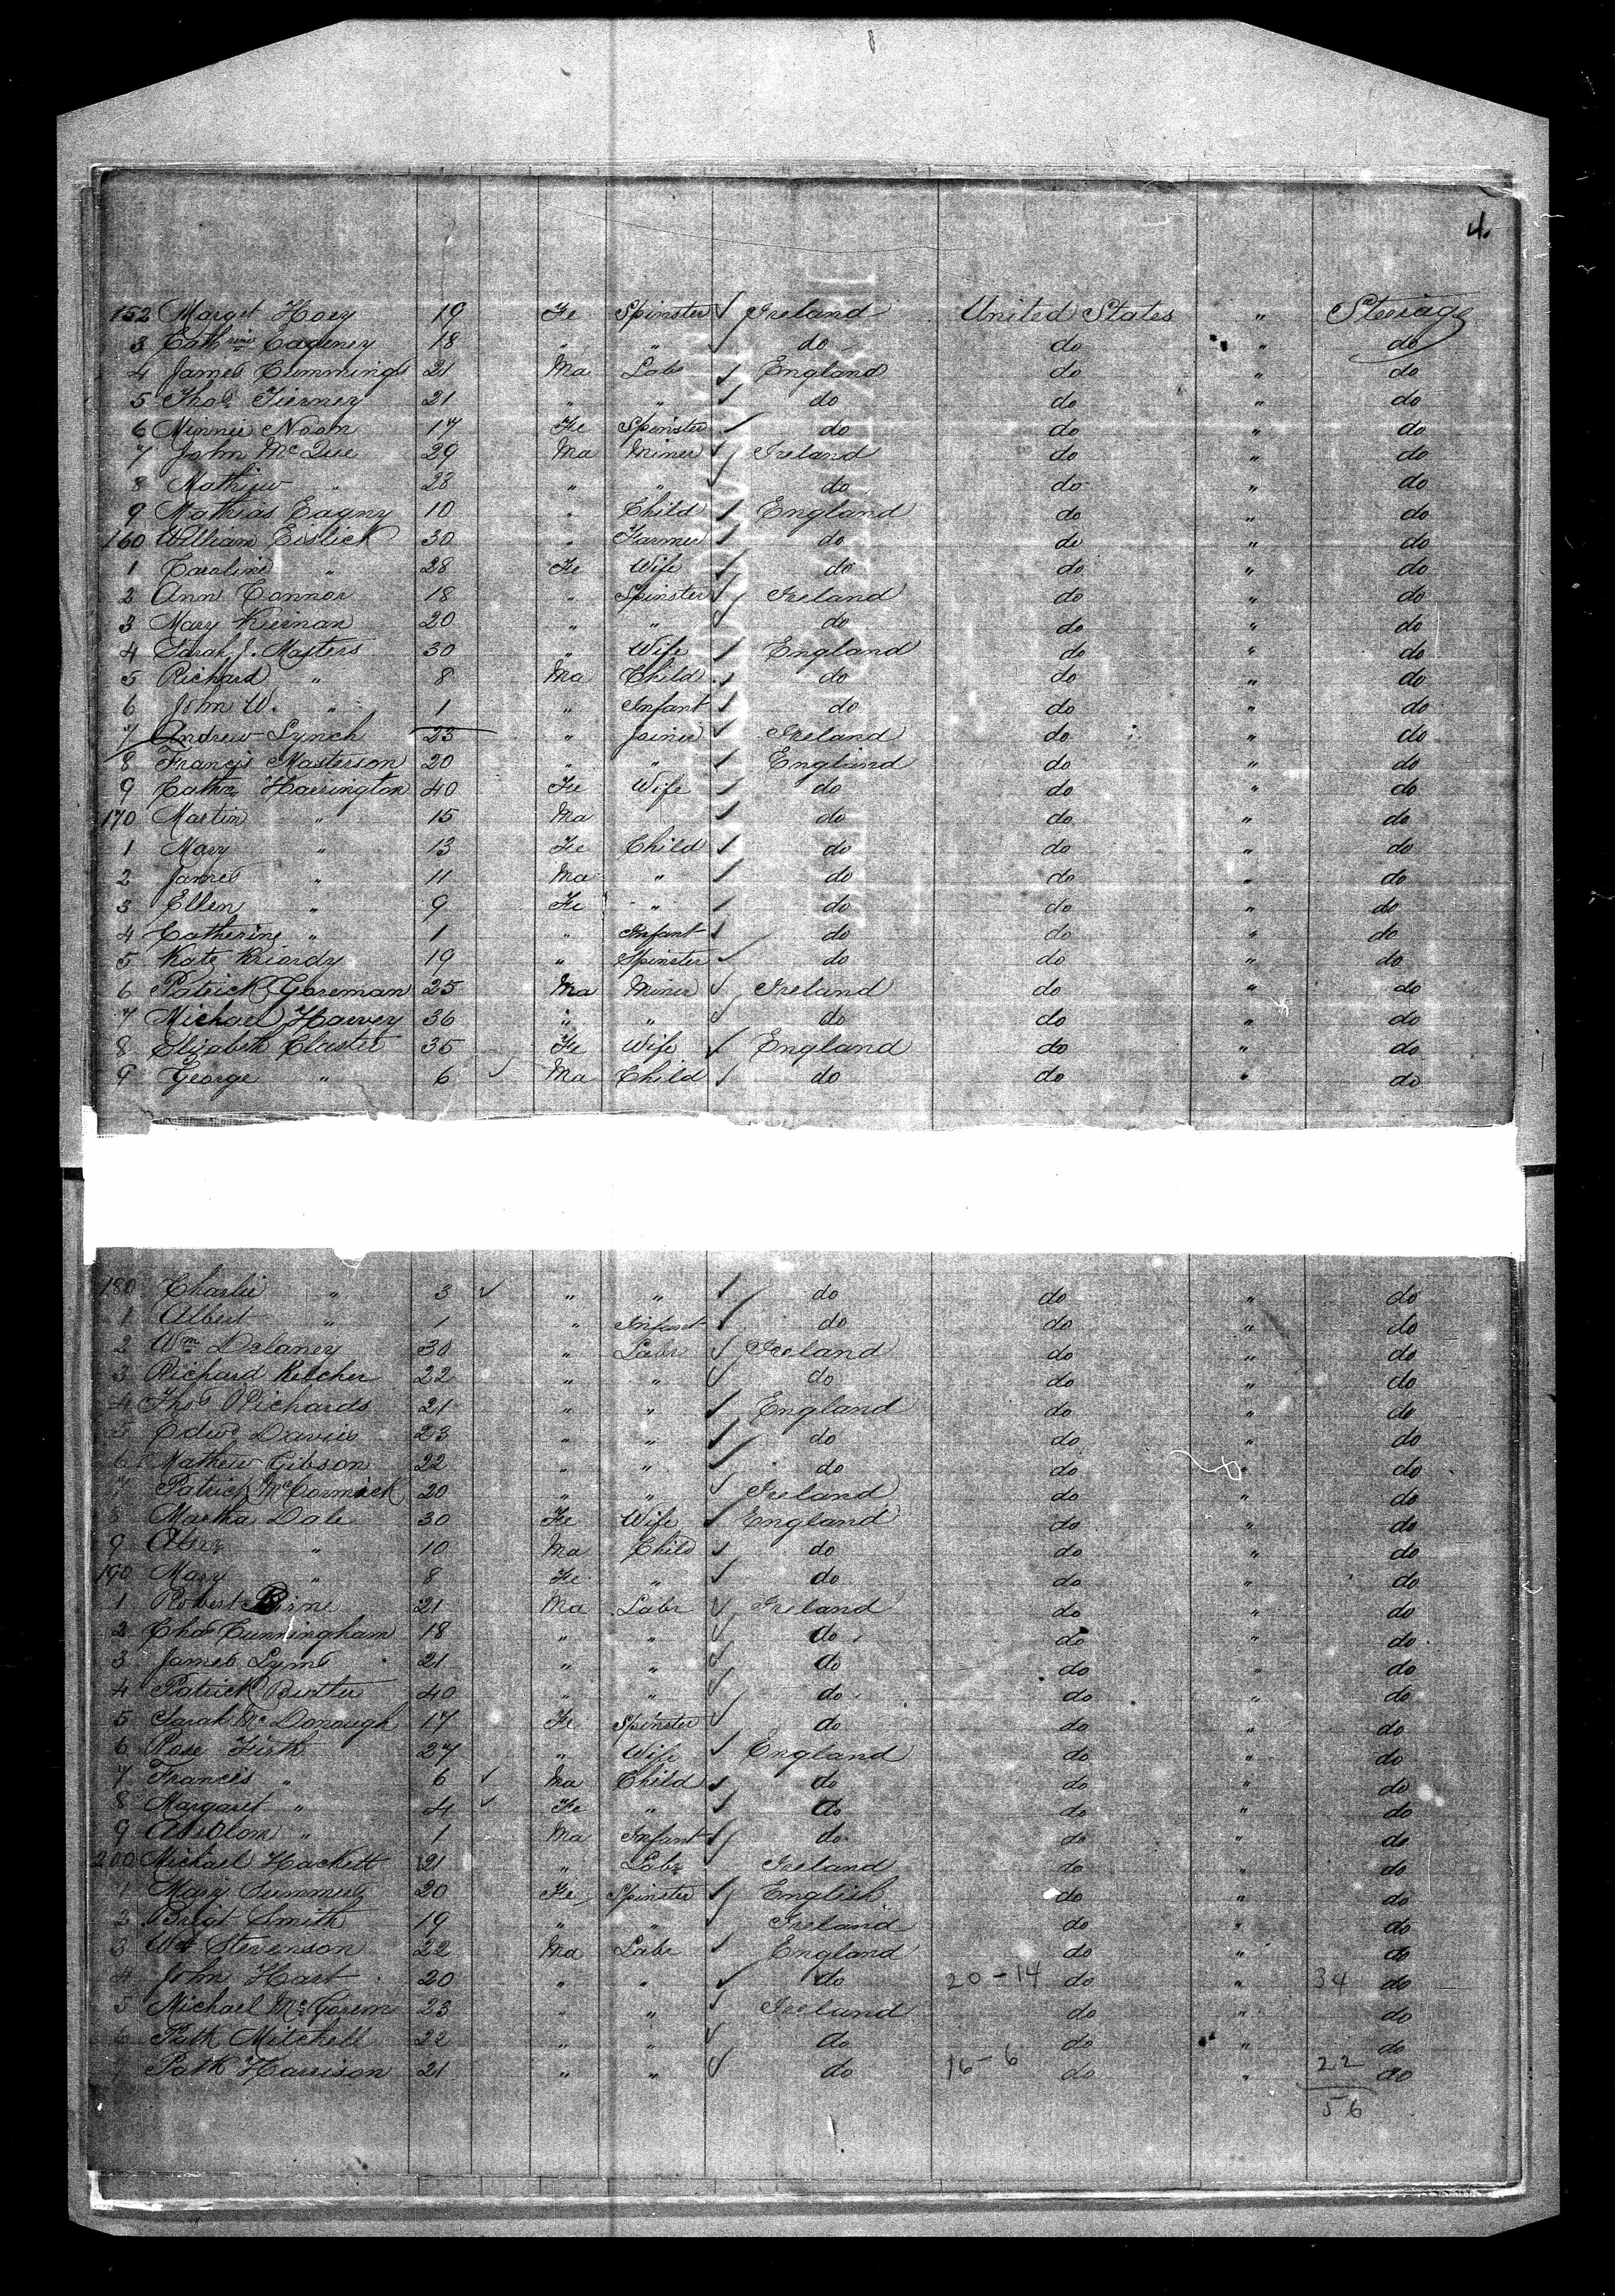 4.
152 Marget Hoey 19 Fe Spinster ✓ Ireland United States " Steerage
3 Cathrine Cageney 18 " " ✓ do do " do
4 James Cummings 21 Ma Labr ✓ England do " do
5 Thos Tierney 21 " " ✓ do do " do
6 Minnie Noon 17 Fe Spinster ✓ do do " do
7 John McQue 29 Ma Miner ✓ Ireland do " do
8 Mathew " 28 " " ✓ do do " do
9 Mathias Eagny 10 " Child ✓ England do " do
160 William Eislick 30 " Farmer ✓ do do " do
1 Caroline " 28 Fe Wife ✓ do do " do
2 Ann Connor 18 " Spinster ✓ Ireland do " do
3 Mary Kiernan 20 " " ✓ do do " do
4 Sarah J. Masters 30 " Wife ✓ England do " do
5 Richard " 8 Ma Child ✓ do do " do
6 John W. " 1 " Infant ✓ do do " do
7 Andrew Lynch 23 " Joiner ✓ Ireland do " do
8 Francis Masterson 20 " " ✓ England do " do
9 Cathr Harrington 40 Fe Wife ✓ do do " do
170 Martin " 15 Ma ✓ do do " do
1 Mary " 13 Fe Child ✓ do do " do
2 James " 11 Ma " ✓ do do " do
3 Ellen " 9 Fe " ✓ do do " do
4 Catherine " 1 " Infant ✓ do do " do
5 Kate Kriordy 19 " Spinster ✓ do do " do
6 Patrick Goreman 25 Ma Miner ✓ Ireland do " do
7 Michael Harvey 36 " " ✓ do do " do
8 Elizabeth Claister 35 Fe Wife ✓ England do " do
9 George " 6 ✓ Ma Child ✓ do do " do
180 Charlie " 3 ✓ " " ✓ do do " do
1 Albert " 1 " Infant ✓ do do " do
2 Wm Delaney 30 " Labr ✓ Ireland do " do
3 Richard Kelcher 22 " " ✓ do do " do
4 Thos Richards 21 " " ✓ England do " do
5 Edwd Davies 23 " " ✓ do do " do
6 Mathew Gibson 22 " " ✓ do do " do
7 Patrick McCormick 20 " " ✓ Ireland do " do
8 Martha Dale 30 Fe Wife ✓ England do " do
9 Alexr " 10 Ma Child ✓ do do " do
190 Mary " 8 Fe " ✓ do do " do
1 Robert Birne 21 Ma Labr ✓ Ireland do " do
2 Chas Cunningham 18 " " ✓ do do " do
3 James Lyms 21 " " ✓ do do " do
4 Patrick Butler 40 " " ✓ do do " do
5 Sarah McDonough 17 Fe Spinster ✓ do do " do
6 Rose Firth 27 " Wife ✓ England do " do
7 Francis " 6 ✓ Ma Child ✓ do do " do
8 Margaret " 4 ✓ Fe " ✓ do do " do
9 Absolom " 1 Ma Infant ✓ do do " do
200 Michael Hackett 21 " Labr Ireland do " do
1 Mary Summers 20 Fe Spinster ✓ English do " do
2 Brigt Smith 19 " " ✓ Ireland do " do
3 Wm Stevenson 22 Ma Labr ✓ England do " do
4 John Hart 20 " " ✓ do 20-14 do " 34 do
5 Michael McGorem 23 " " ✓ Ireland do " do
6 Patk Mitchell 22 " " ✓ do do " do
7 Patk Harrison 21 " " ✓ do 16-6 do " 22 do
56